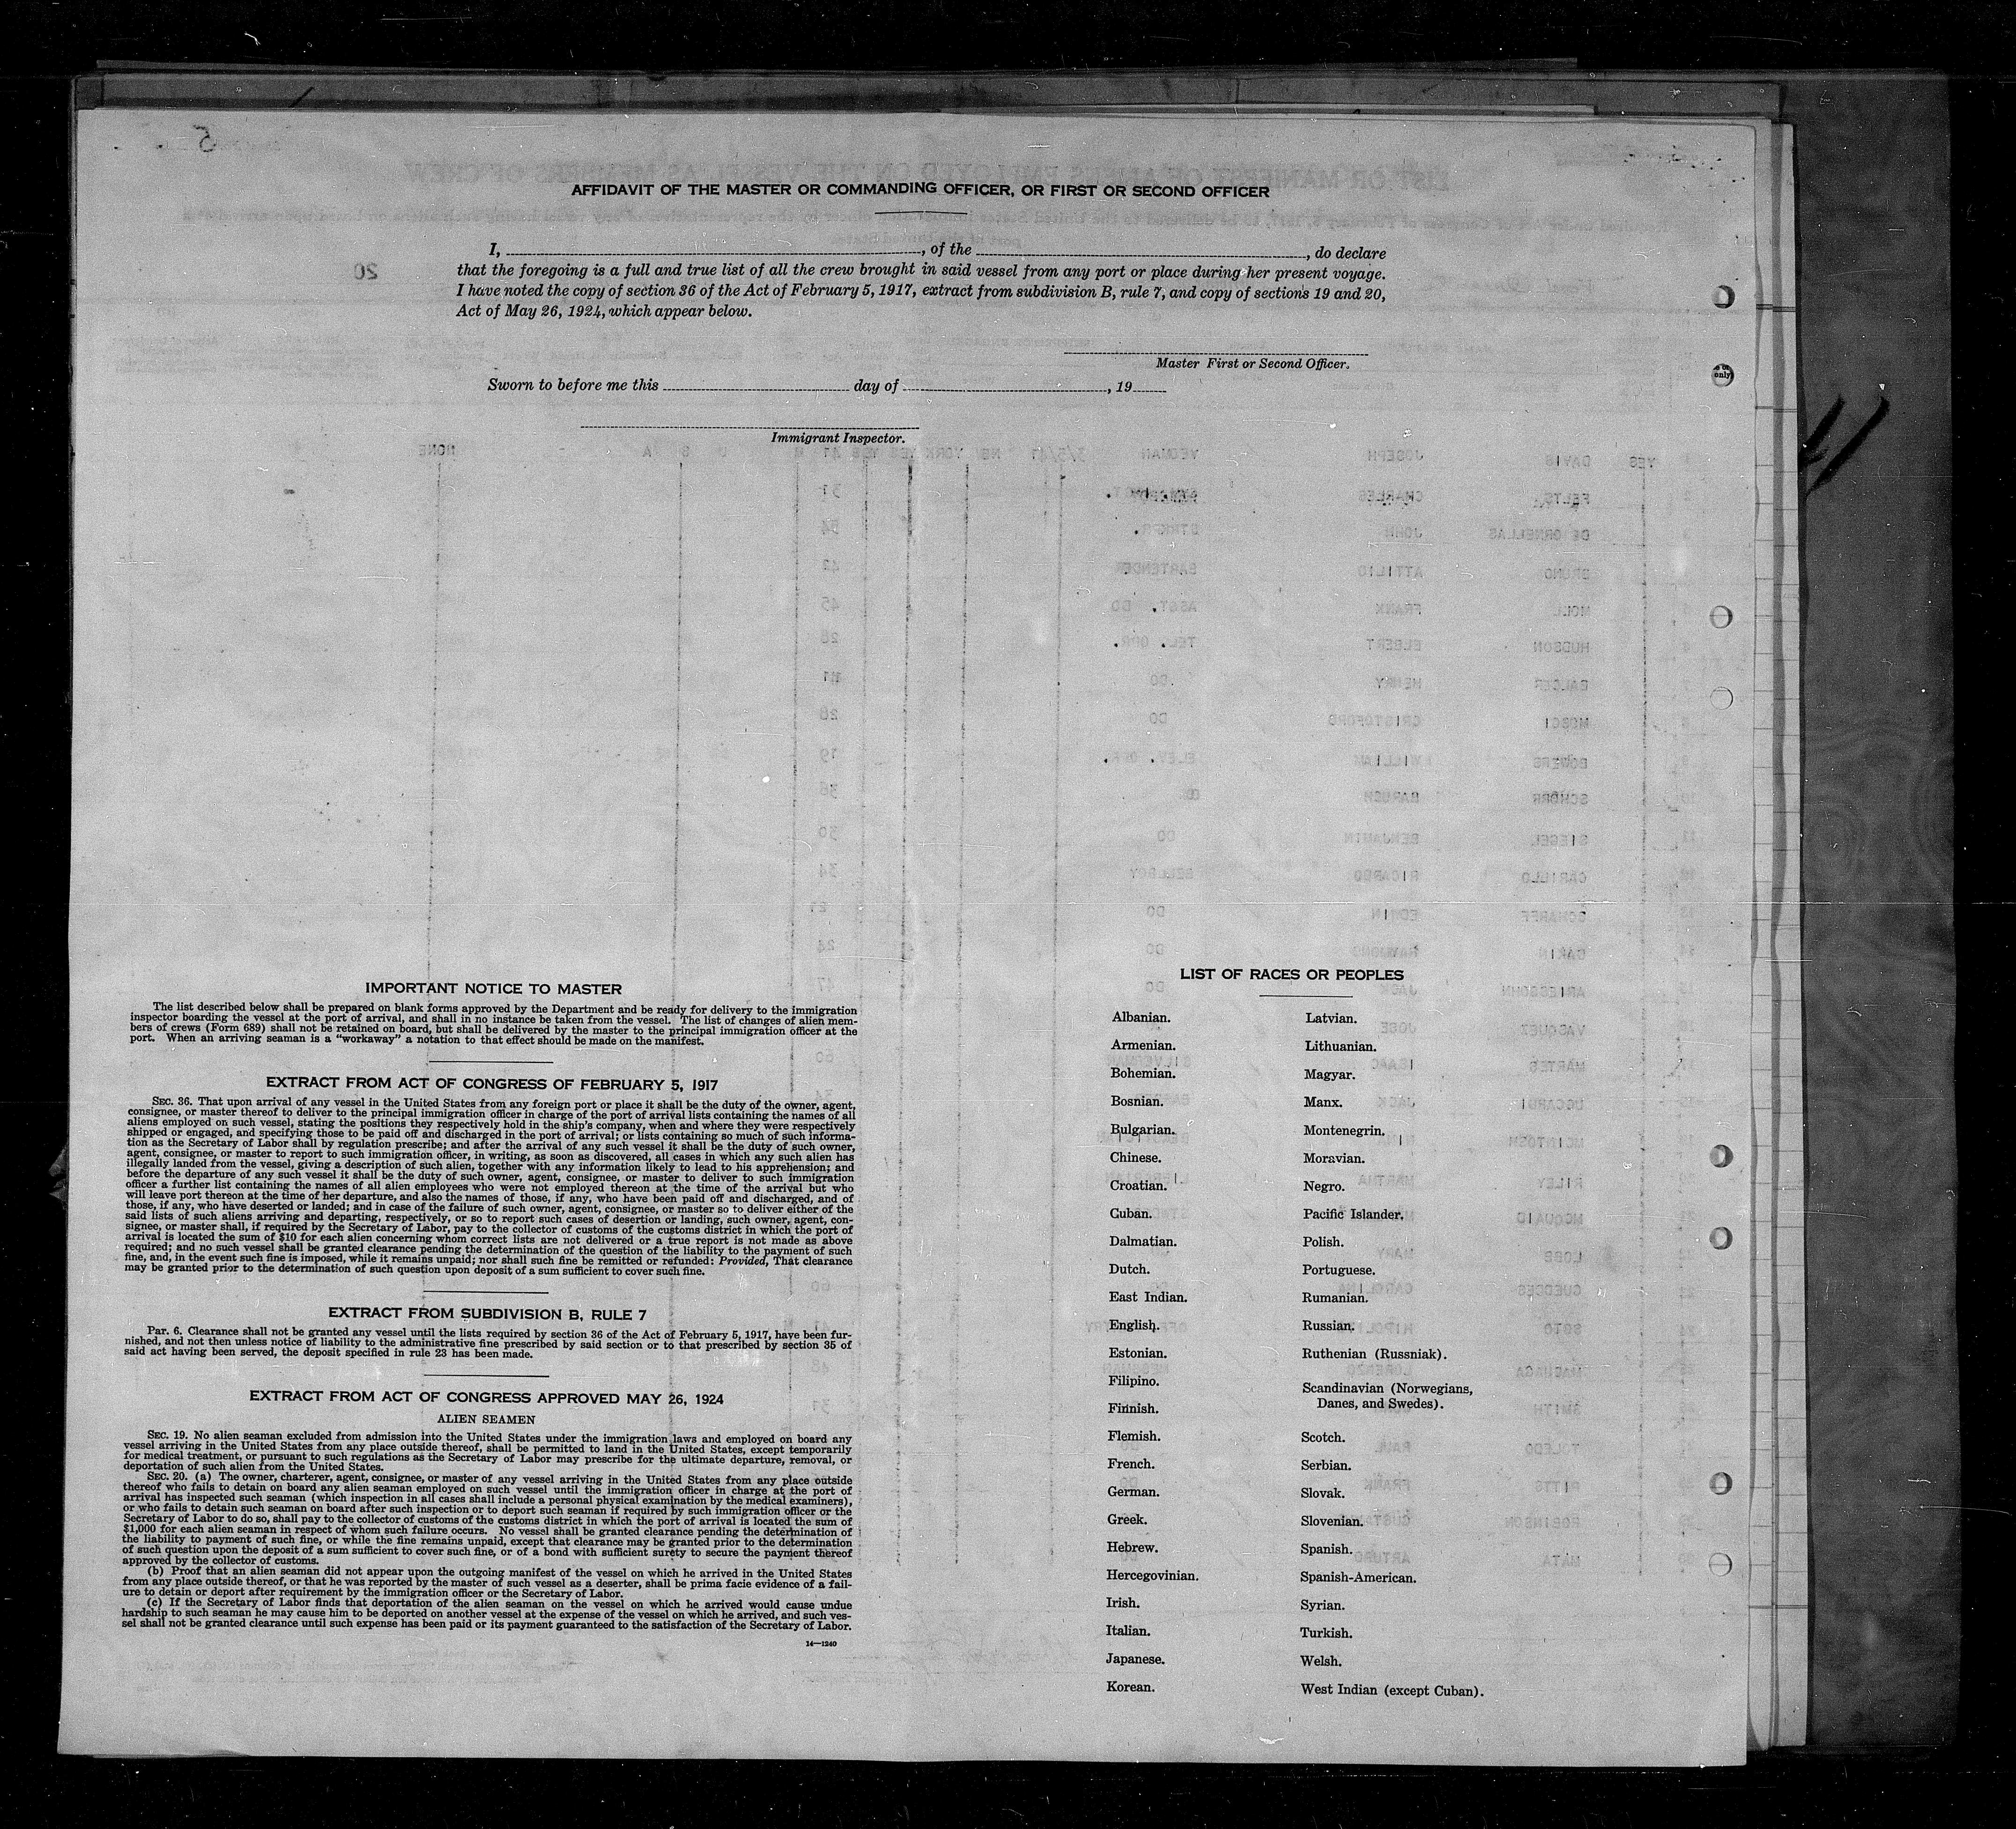 AFFIDAVIT OF THE MASTER OR COMMANDING OFFICER, OR FIRST OR SECOND OFFICER
I, , of the , do declare
that the foregoing is a full and true list of all the crew brought in said vessel from any port or place during her present voyage.
I have noted the copy of section 36 of the Act of February 5, 1917, extract from subdivision B, rule 7, and copy of sections 19 and 20,
Act of May 26, 1924, which appear below.
Master First or Second Officer.
Sworn to before me this day of , 19
Immigrant Inspector.
IMPORTANT NOTICE TO MASTER
The list described below shall be prepared on blank forms approved by the Department and be ready for delivery to the immigration
inspector boarding the vessel at the port of arrival, and shall in no instance be taken from the vessel. The list of changes of alien mem-
bers of crews (Form 689) shall not be retained on board, but shall be delivered by the master to the principal immigration officer at the
port. When an arriving seaman is a "workaway" a notation to that effect should be made on the manifest.
EXTRACT FROM ACT OF CONGRESS OF FEBRUARY 5, 1917
SEC. 36. That upon arrival of any vessel in the United States from any foreign port or place it shall be the duty of the owner, agent,
consignee, or master thereof to deliver to the principal immigration officer in charge of the port of arrival lists containing the names of all
aliens employed on such vessel, stating the positions they respectively hold in the ship's company, when and where they were respectively
shipped or engaged, and specifying those to be paid off and discharged in the port of arrival; or lists containing so much of such informa-
tion as the Secretary of Labor shall by regulation prescribe; and after the arrival of any such vessel it shall be the duty of such owner,
agent, consignee, or master to report to such immigration officer, in writing, as soon as discovered, all cases in which any such alien has
illegally landed from the vessel, giving a description of such alien, together with any information likely to lead to his apprehension; and
before the departure of any such vessel it shall be the duty of such owner, agent, consignee, or master to deliver to such immigration
officer a further list containing the names of all alien employees who were not employed thereon at the time of the arrival but who
will leave port thereon at the time of her departure, and also the names of those, if any, who have been paid off and discharged, and of
those, if any, who have deserted or landed; and in case of the failure of such owner, agent, consignee, or master so to deliver either of the
said lists of such aliens arriving and departing, respectively, or so to report such cases of desertion or landing, such owner, agent, con-
signee, or master shall, if required by the Secretary of Labor, pay to the collector of customs of the customs district in which the port of
arrival is located the sum of $10 for each alien concerning whom correct lists are not delivered or a true report is not made as above
required; and no such vessel shall be granted clearance pending the determination of the question of the liability to the payment of such
fine, and, in the event such fine is imposed, while it remains unpaid; nor shall such fine be remitted or refunded: Provided, That clearance
may be granted prior to the determination of such question upon deposit of a sum sufficient to cover such fine.
EXTRACT FROM SUBDIVISION B, RULE 7
Par. 6. Clearance shall not be granted any vessel until the lists required by section 36 of the Act of February 5, 1917, have been fur-
nished, and not then unless notice of liability to the administrative fine prescribed by said section or to that prescribed by section 35 of
said act having been served, the deposit specified in rule 23 has been made.
EXTRACT FROM ACT OF CONGRESS APPROVED MAY 26, 1924
ALIEN SEAMEN
SEC. 19. No alien seaman excluded from admission into the United States under the immigration laws and employed on board any
vessel arriving in the United States from any place outside thereof, shall be permitted to land in the United States, except temporarily
for medical treatment, or pursuant to such regulations as the Secretary of Labor may prescribe for the ultimate departure, removal, or
deportation of such alien from the United States.
SEC. 20. (a) The owner, charterer, agent, consignee, or master of any vessel arriving in the United States from any place outside
thereof who fails to detain on board any alien seaman employed on such vessel until the immigration officer in charge at the port of
arrival has inspected such seaman (which inspection in all cases shall include a personal physical examination by the medical examiners),
or who fails to detain such seaman on board after such inspection or to deport such seaman if required by such immigration officer or the
Secretary of Labor to do so, shall pay to the collector of customs of the customs district in which the port of arrival is located the sum of
$1,000 for each alien seaman in respect of whom such failure occurs. No vessel shall be granted clearance pending the determination of
the liability to payment of such fine, or while the fine remains unpaid, except that clearance may be granted prior to the determination
of such question upon the deposit of a sum sufficient to cover such fine, or of a bond with sufficient surety to secure the payment thereof
approved by the collector of customs.
(b) Proof that an alien seaman did not appear upon the outgoing manifest of the vessel on which he arrived in the United States
from any place outside thereof, or that he was reported by the master of such vessel as a deserter, shall be prima facie evidence of a fail-
ure to detain or deport after requirement by the immigration officer or the Secretary of Labor.
(c) If the Secretary of Labor finds that deportation of the alien seaman on the vessel on which he arrived would cause undue
hardship to such seaman he may cause him to be deported on another vessel at the expense of the vessel on which he arrived, and such ves-
sel shall not be granted clearance until such expense has been paid or its payment guaranteed to the satisfaction of the Secretary of Labor.
14—1240
LIST OF RACES OR PEOPLES
Albanian.
Armenian.
Bohemian.
Bosnian.
Bulgarian.
Chinese.
Croatian.
Cuban.
Dalmatian.
Dutch.
East Indian.
English.
Estonian.
Filipino.
Finnish.
Flemish.
French.
German.
Greek.
Hebrew.
Hercegovinian.
Irish.
Italian.
Japanese.
Korean.
Latvian.
Lithuanian.
Magyar.
Manx.
Montenegrin.
Moravian.
Negro.
Pacific Islander.
Polish.
Portuguese.
Rumanian.
Russian.
Ruthenian (Russniak).
Scandinavian (Norwegians,
Danes, and Swedes).
Scotch.
Serbian.
Slovak.
Slovenian.
Spanish.
Spanish-American.
Syrian.
Turkish.
Welsh.
West Indian (except Cuban).